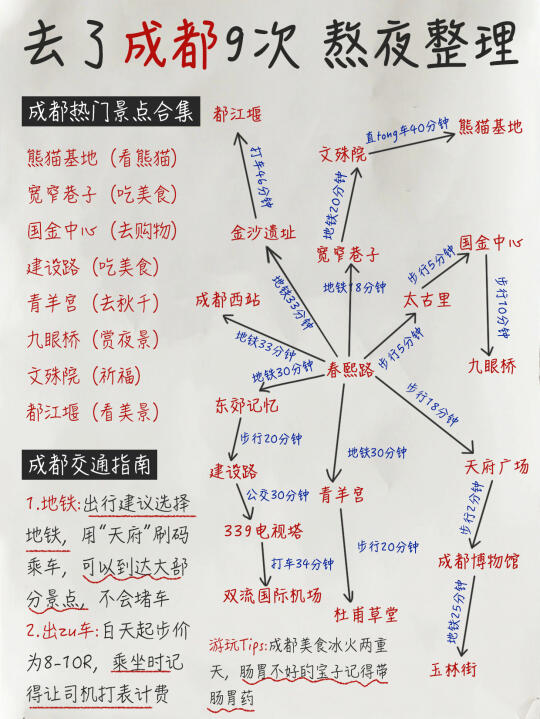 去了成都9次 熬夜整理
成都热门景点合集
熊猫基地（看熊猫）
宽窄巷子（吃美食）
国金中心（去购物）
建设路（吃美食）
青羊宫（去秋千）
九眼桥（赏夜景）
文殊院（祈福）
都江堰（看美景）
成都交通指南
1.地铁:出行建议选择
地铁，用“天府”刷码
乘车，可以到达大部
分景点，不会堵车
2.出zu车:白天起步价
为8-10R，乘坐时记
得让司机打表计费
都江堰
打车46分钟
金沙遗址
地铁33分钟
文殊院
直tong车40分钟
熊猫基地
地铁20分钟
宽窄巷子
地铁18分钟
国金中心
步行5分钟
太古里
步行5分钟
步行10分钟
九眼桥
成都西站
地铁33分钟
春熙路
地铁30分钟
东郊记忆
步行20分钟
建设路
公交30分钟
339电视塔
打车34分钟
双流国际机场
地铁30分钟
青羊宫
步行20分钟
杜甫草堂
步行18分钟
天府广场
步行2分钟
成都博物馆
地铁25分钟
玉林街
游玩Tips:成都美食冰火两重
天，肠胃不好的宝子记得带
肠胃药